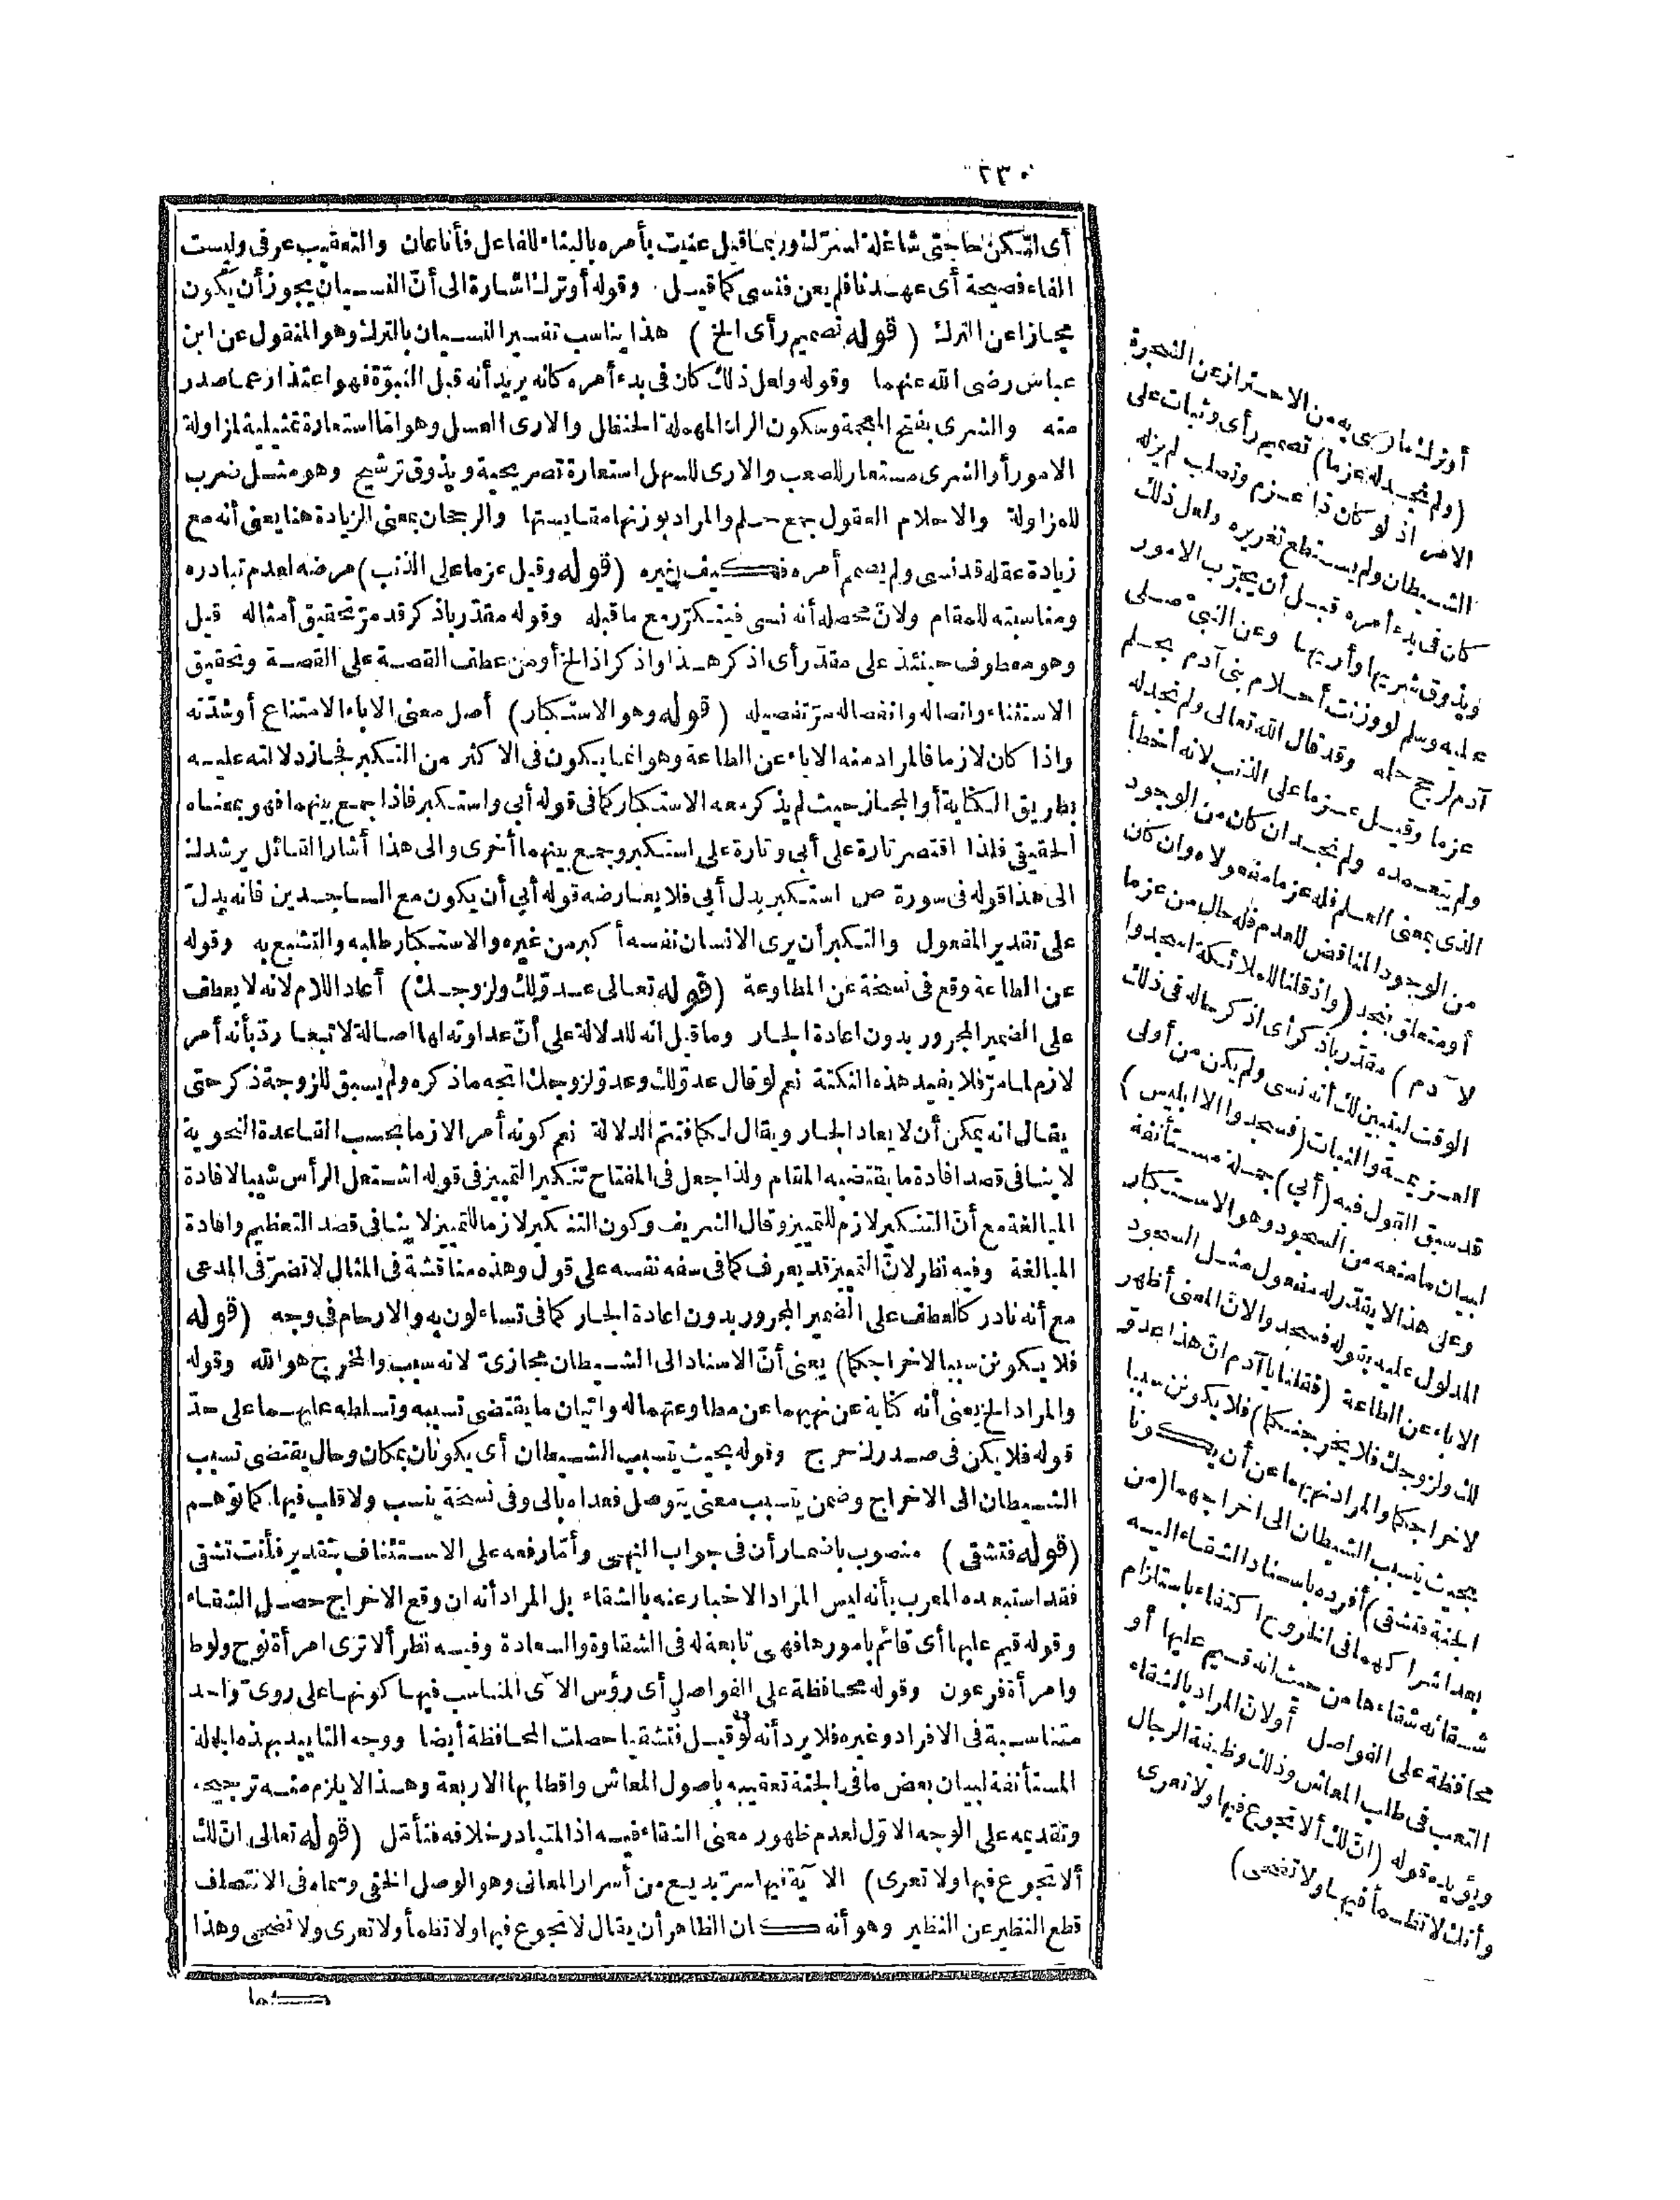 ٢٣٠
أى لتكن حاجتى شاغلة لسرّك وربما قيل عنيت بأمره بالبناء للفاعل فأنا عان والتعقيب عرفى وليست
الفاء فصيحة أى عهدنا فلم يعن فنسى كما قيل. وقوله أوترك اشارة الى أنّ النسيان يجوز أن يكون
مجازا عن الترك (قوله تصميم رأى الخ) هذا يناسب تفسير النسيان بالترك وهو المنقول عن ابن
عباس رضى الله عنهما وقوله ولعل ذلك كان فى بدء أمره كانه يريد أنه قبل النبوّة فهو اعتذار عما صدر
منه والشرى بفتح المعجمة وسكون الراء المهملة الحنظل والارى العسل وهو امّا استعارة تمثيلية لمزاولة
الامور أو الشرى مستعار للصعب والارى للسهل استعارة تصريحية ويذوق ترشيح وهو مثل ضرب
للمزاولة والاحلام العقول جمع حلم والمراد بوزنها مقايستها والرجحان بمعنى الزيادة هنا يعنى أنه مع
زيادة عقله قد نسى ولم يصمم أمره فكيف بغيره (قوله وقيل عزما على الذنب) مرضه لعدم تبادره
ومناسبته للمقام ولانّ محصله أنه نسى فيتكرّر مع ما قبله وقوله مقدّر باذكر قد مرّ تحقيق أمثاله قيل
وهو معطوف حينئذ على مقدّر أى اذكر هذا واذكر اذ الخ أو من عطف القصة على القصة وتحقيق
الاستثناء واتصاله وانفصاله مرّ تفصيله (قوله وهو الاستكبار) أصل معنى الاباء الامتناع أو شدّته
واذا كان لازما فالمراد منه الاباء عن الطاعة وهو انما يكون فى الاكثر من التكبر فجاز دلالته عليه
بطريق الكناية أو المجاز حيث لم يذكر معه الاستكبار كما فى قوله أبى واستكبر فاذا جمع بينهما فهو بمعناه
الحقيقى فلذا اقتصر تارة على أبى وتارة على استكبر وجمع بينهما أخرى والى هذا أشار القائل يرشدك
الى هذا قوله فى سورة ص استكبر بدل أبى فلا يعارضه قوله أبى أن يكون مع الساجدين فانه يدلّ
على تقدير المفعول والتكبر أن يرى الانسان نفسه أكبر من غيره والاستكبار طلبه والتشبع به وقوله
عن الطاعة وقع فى نسخة عن المطاوعة (قوله تعالى عدوّ لك ولزوجك) أعاد اللام لانه لا يعطف
على الضمير المجرور بدون اعادة الجار وما قيل انه للدلالة على أنّ عداوته لها اصالة لا تبعا ردّ بأنه أمر
لازم لما مرّ فلا يفيد هذه النكتة نعم لو قال عدوّ لك وعدوّ لزوجك اتجه ما ذكره ولم يسبق للزوجة ذكر حتى
يقال انه يمكن أن لا يعاد الجار ويقال لكما فتتم الدلالة نعم كونه أمرا لازما بحسب القاعدة النحوية
لا ينافى قصد افادة ما يقتضيه المقام ولذا جعل فى المفتاح تنكير التمييز فى قوله اشتعل الرأس شيبا لافادة
المبالغة مع أنّ التنكير لازم للتمييز وقال الشريف وكون التنكير لازما للتمييز لا ينافى قصد التعظيم وافادة
المبالغة وفيه نظر لانّ التمييز قد يعرف كما فى سفه نفسه على قول وهذه مناقشة فى المثال لا تضرّ فى المدعى
مع أنه نادر كالعطف على الضمير المجرور بدون اعادة الجار كما فى تساءلون به والارحام فى وجه (قوله
فلا يكونن سببا لاخراجكما) يعنى أنّ الاسناد الى الشيطان مجازىّ لانه سبب والمخرج هو الله وقوله
والمراد الخ يعنى أنه كناية عن نهيهما عن مطاوعتهما له واتيان ما يقتضى تسببه وتسلطه عليهما على حدّ
قوله فلا يكن فى صدرك حرج وقوله بحيث يتسبب الشيطان أى يكونان بمكان وحال يقتضى تسبب
الشيطان الى الاخراج وضمن يتسبب معنى يتوصل فعداه بالى وفى نسخة ينسب ولا قلب فيها كما توهم
(قوله فتشقى) منصوب باضمار أن فى جواب النهى وأمّا رفعه على الاستئناف بتقدير فأنت تشقى
فقد استبعده المعرب بأنه ليس المراد الاخبار عنه بالشقاء بل المراد أنه ان وقع الاخراج حصل الشقاء
وقوله قيم عليها أى قائم بامورها فهى تابعة له فى الشقاوة والسعادة وفيه نظر ألا ترى امرأة نوح ولوط
وامرأة فرعون وقوله محافظة على الفواصل أى رؤس الآى المناسب فيها كونها على روىّ واحد
متناسبة فى الافراد وغيره فلا يرد أنه لو قيل فتشقيا حصلت المحافظة أيضا ووجه التاييد بهذه الجملة
المستأنفة لبيان بعض ما فى الجنة تعقيبه باصول المعاش واقطابها الاربعة وهذا لا يلزم منه ترجيحه
وتقديمه على الوجه الاوّل لعدم ظهور معنى الشقاء فيه اذ المتبادر خلافه فتأمّل (قوله تعالى انّ لك
ألا تجوع فيها ولا تعرى) الآية فيها سرّ بديع من أسرار المعانى وهو الوصل الخفى وسماه فى الانتصاف
قطع النظير عن النظير وهو أنه كان الظاهر أن يقال لا تجوع فيها ولا تظمأ ولا تعرى ولا تضحى وهذا
أوترك ما وصى به من الاحتراز عن الشجرة
(ولم نجد له عزما) تصميم رأى وثبات على
الامر اذ لو كان ذا عزم وتصلب لم يزله
الشيطان ولم يستطع تغريره ولعل ذلك
كان فى بدء أمره قبل أن يجرّب الامور
ويذوق شريها وأريها وعن النبىّ صلى
عليه وسلم لو وزنت أحلام بنى آدم بحلم
آدم لرجح حلمه وقد قال الله تعالى ولم نجد له
عزما وقيل عزما على الذنب لانه أخطأ
ولم يتعمده ولم نجد ان كان من الوجود
الذى بمعنى العلم فله عزما مفعولاه وان كان
من الوجود المناقض للعدم فله حال من عزما
أو متعلق بنجد (واذ قلنا للملائكة اسجدوا
لآدم) مقدّر باذكر أى اذكر حاله فى ذلك
الوقت ليتبين لك أنه نسى ولم يكن من أولى
العزيمة والثبات (فسجدوا الا ابليس)
قد سبق القول فيه (أبى) جملة مستأنفة
لبيان ما منعه من السجود وهو الاستكبار
وعلى هذا لا يقدّر له مفعول مثل السجود
المدلول عليه بقوله فسجدوا لانّ المعنى أظهر
الاباء عن الطاعة (فقلنا يا آدم انّ هذا عدوّ
لك ولزوجك فلا يخرجنكما) فلا يكونن سببا
لاخراجكما والمراد نهيهما عن أن يكونا
بحيث يتسبب الشيطان الى اخراجهما (من
الجنة فتشقى) أفرده باسناد الشقاء اليه
بعد اشراكهما فى الخروج اكتفاء باستلزام
شقائه شقاءها من حيث انه قيم عليها أو
محافظة على الفواصل أو لانّ المراد بالشقاء
التعب فى طلب المعاش وذلك وظيفة الرجال
ويؤيده قوله (انّ لك ألا تجوع فيها ولا تعرى
وأنك لا تظمأ فيها ولا تضحى)
كما